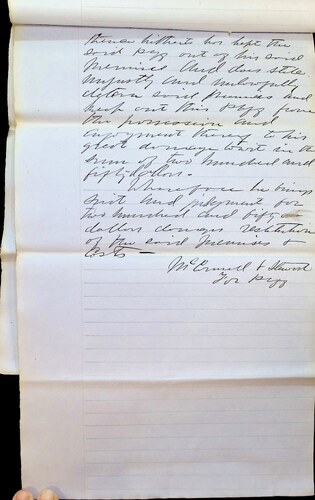 thence hitherto has kept the
said Plff out of his said
Premises And does still
unjustly and unlawfully
detain said Premises and
keep out this Plff from
the possession and
enjoyment thereof to his
great damage
sum of two hundred and
fifty dollars.
Wherefore he brings
suit And judgment for
two hundred and fifty
dollars damages restitution
of the said Premises &
Costs —
& Stewart
For Plff